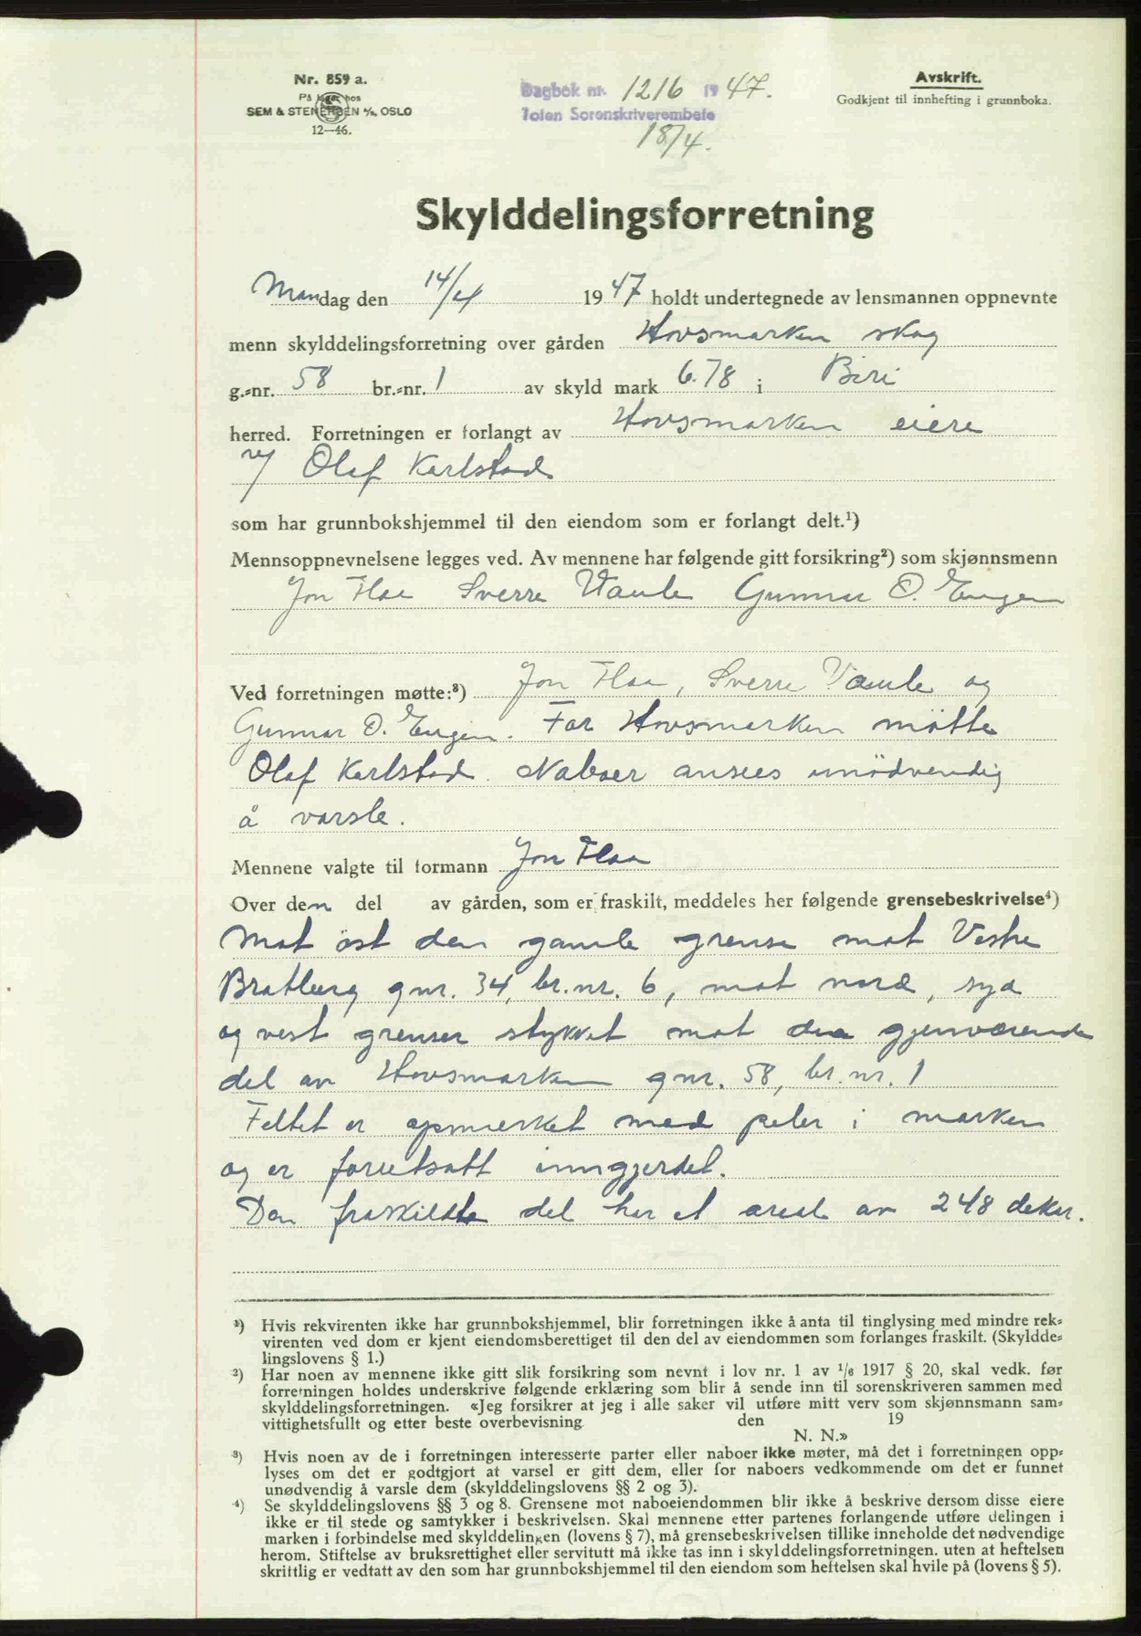 Nr. 859 a.
På lager hos
SEM & STENERSEN A/S, OSLO
12—46.
Dagbok nr. 1216 1947.
Toten Sorenskriverembete
18/4.
Avskrift.
Godkjent til innhefting i grunnboka.
Skylddelingsforretning
Mandag den 14/4 1947 holdt undertegnede av lensmannen oppnevnte
menn skylddelingsforretning over gården Hovsmarken skog
g.-nr. 58 br.-nr. 1 av skyld mark 6.78 i Biri
herred. Forretningen er forlangt av Hovsmarken eiere
v/ Olaf Karlstad
som har grunnbokshjemmel til den eiendom som er forlangt delt.¹)
Mennsoppnevnelsene legges ved. Av mennene har følgende gitt forsikring²) som skjønnsmenn
Jon Flaa Sverre Vaule Gunnar O. Engen
Ved forretningen møtte:³) Jon Flaa, Sverre Vaule og
Gunnar O. Engen. For Hovsmarken møtte
Olaf Karlstad. Naboer ansees unödvendig
å varsle.
Mennene valgte til formann Jon Flaa
Over den del av gården, som er fraskilt, meddeles her følgende grensebeskrivelse⁴)
Mot öst den gamle grense mot Vestre
Bratberg gnr. 34, br.nr. 6, mot nord, syd
og vest grenser stykket mot den gjenværende
del av Hovsmarken gnr. 58, br.nr. 1
Feltet er opmerket med peler i marken
og er forutsatt inngjerdet.
Den fraskildte del har et areal av 248 dekar.
¹) Hvis rekvirenten ikke har grunnbokshjemmel, blir forretningen ikke å anta til tinglysing med mindre rek-
virenten ved dom er kjent eiendomsberettiget til den del av eiendommen som forlanges fraskilt. (Skyldde-
lingslovens § 1.)
²) Har noen av mennene ikke gitt slik forsikring som nevnt i lov nr. 1 av 1/6 1917 § 20, skal vedk. før
forretningen holdes underskrive følgende erklæring som blir å sende inn til sorenskriveren sammen med
skylddelingsforretningen. «Jeg forsikrer at jeg i alle saker vil utføre mitt verv som skjønnsmann sam-
vittighetsfullt og etter beste overbevisning den 19
N. N.»
³) Hvis noen av de i forretningen interesserte parter eller naboer ikke møter, må det i forretningen opp-
lyses om det er godtgjort at varsel er gitt dem, eller for naboers vedkommende om det er funnet
unødvendig å varsle dem (skylddelingslovens §§ 2 og 3).
⁴) Se skylddelingslovens §§ 3 og 8. Grensene mot naboeiendommen blir ikke å beskrive dersom disse eiere
ikke er til stede og samtykker i beskrivelsen. Skal mennene etter partenes forlangende utføre delingen i
marken i forbindelse med skylddelingen (lovens § 7), må grensebeskrivelsen tillike inneholde det nødvendige
herom. Stiftelse av bruksrettighet eller servitutt må ikke tas inn i skylddelingsforretningen. uten at heftelsen
skriftlig er vedtatt av den som har grunnbokshjemmel til den eiendom som heftelsen skal hvile på (lovens § 5).